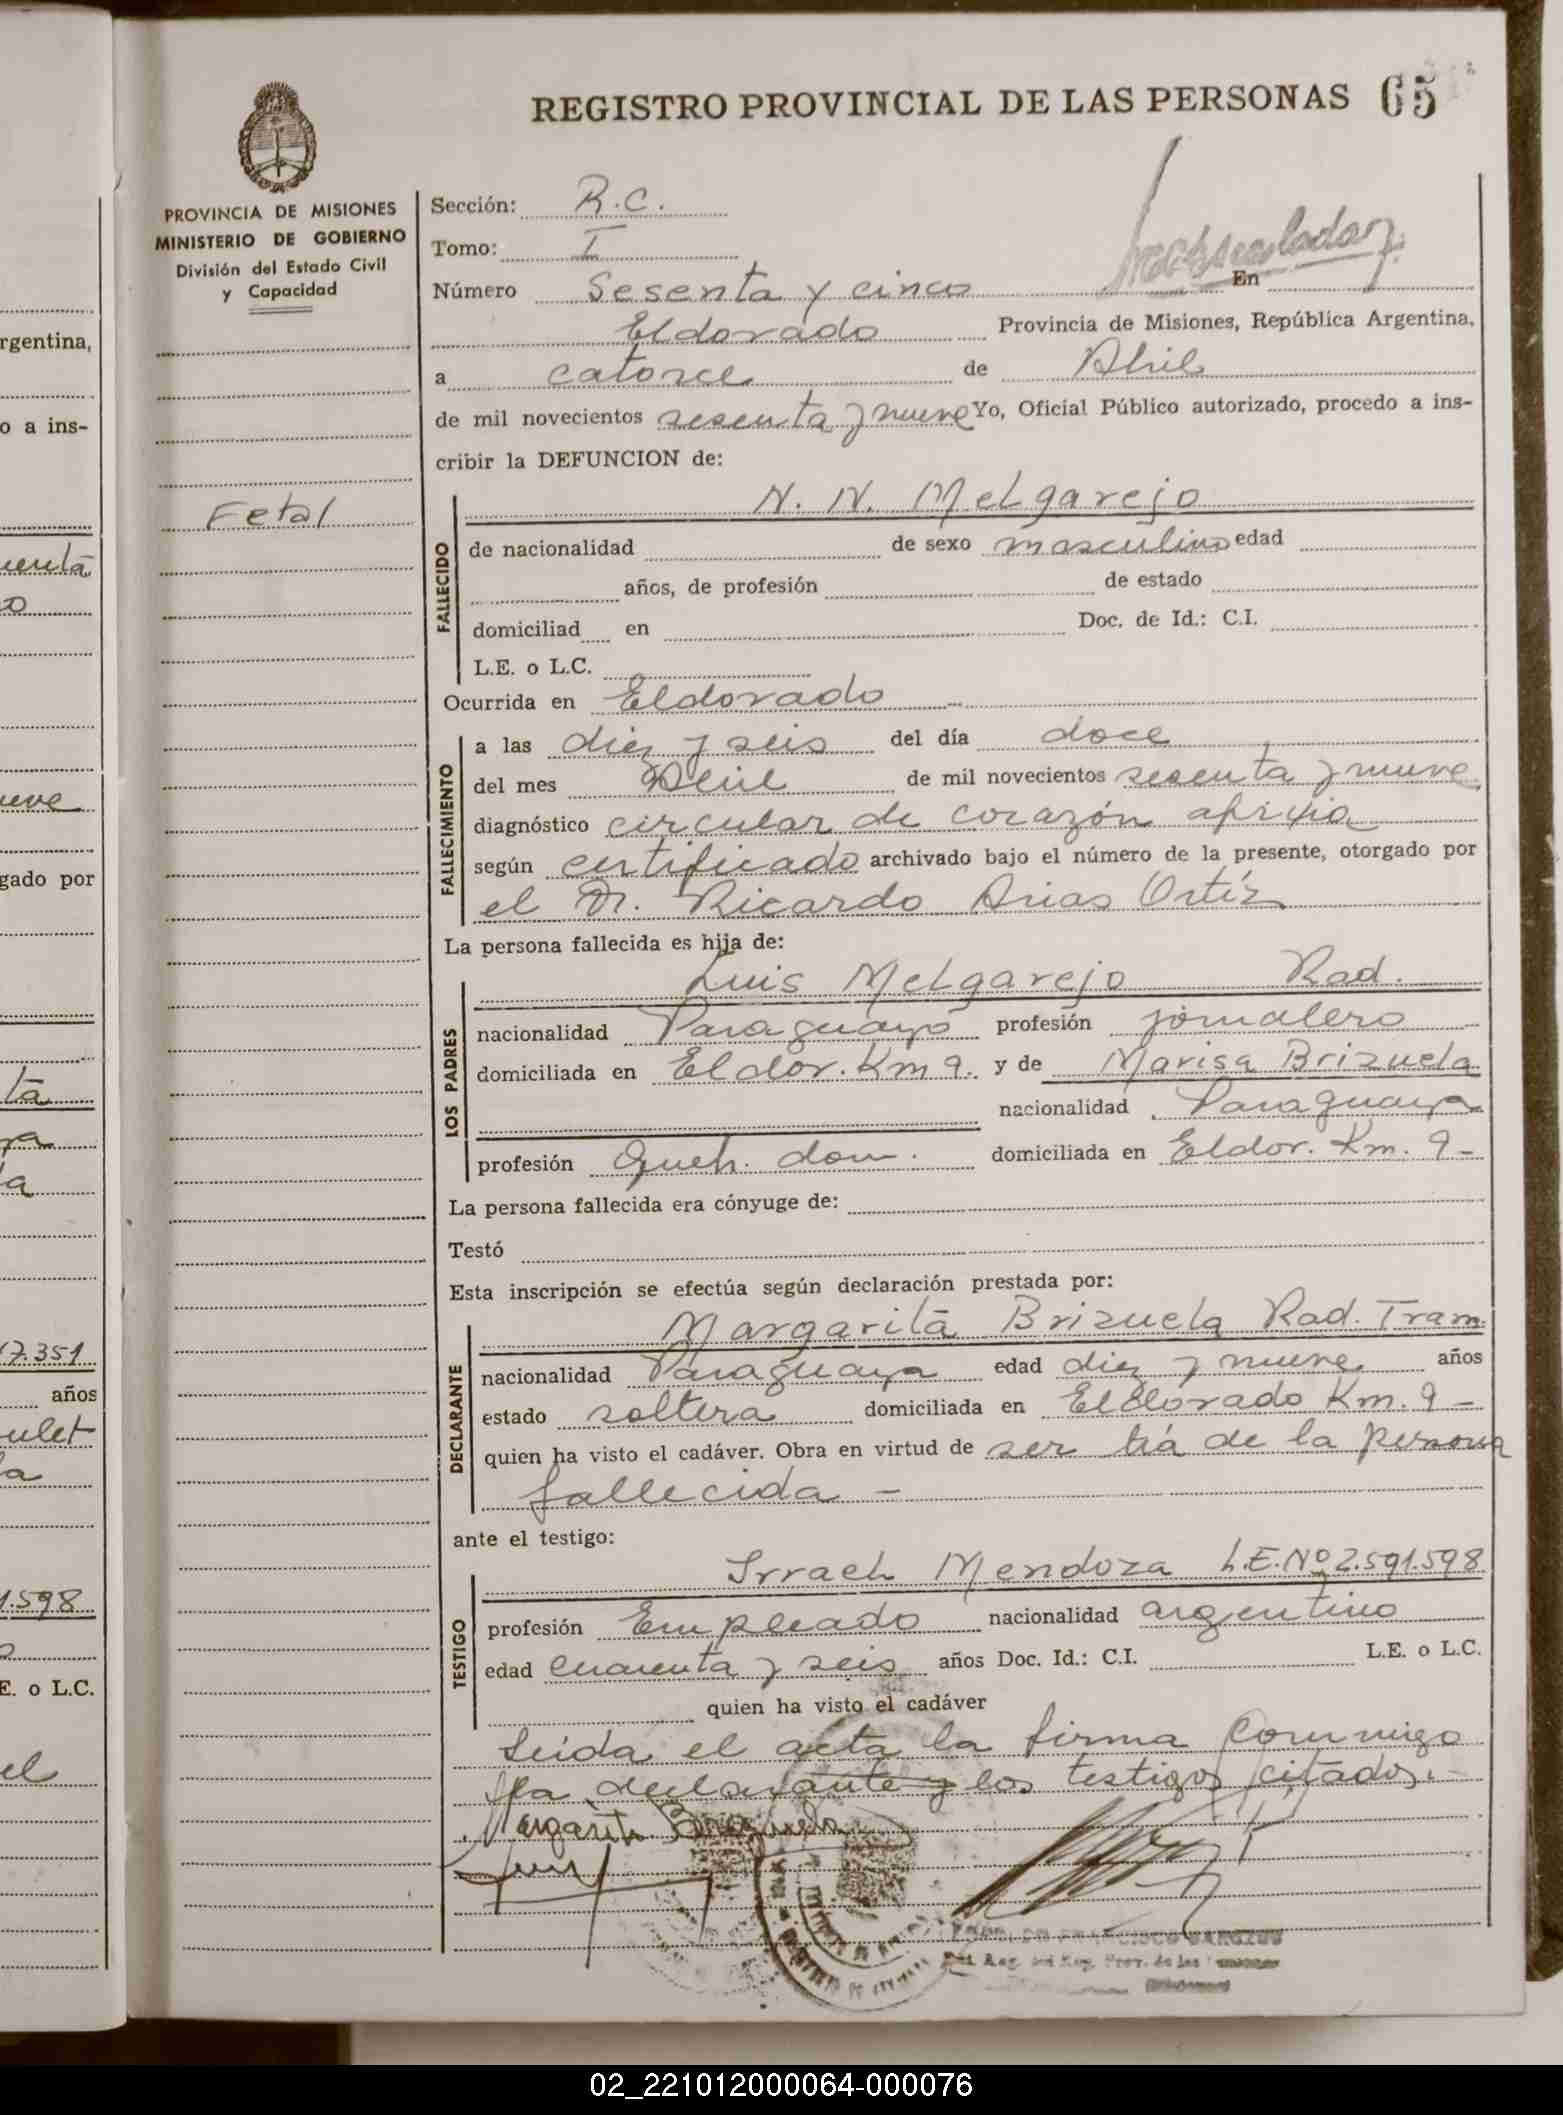 REGISTRO PROVINCIAL DE LAS PERSONAS 65
PROVINCIA DE MISIONES
MINISTERIO DE GOBIERNO
División del Estado Civil
y Capacidad
Fetal
Sección: R.C.
Tomo: I
Número Sesenta y cinco En
Eldorado Provincia de Misiones, República Argentina,
a catorce de Abril
de mil novecientos sesenta y nueve Yo, Oficial Público autorizado, procedo a ins-
cribir la DEFUNCION de:
FALLECIDO
N. N. Melgarejo
de nacionalidad de sexo masculino edad
años, de profesión de estado
domiciliad en Doc. de Id.: C.I.
L.E. o L.C.
Ocurrida en Eldorado
FALLECIMIENTO
a las diez y seis del día doce
del mes Abril de mil novecientos sesenta y nueve
diagnóstico circular de corazón afixia
según certificado archivado bajo el número de la presente, otorgado por
el Dr. Ricardo Arias Ortíz
La persona fallecida es hija de:
LOS PADRES
Luis Melgarejo Rad.
nacionalidad Paraguayo profesión jornalero
domiciliada en Eldor. Km 9. y de Marisa Brizuela
nacionalidad Paraguaya
profesión Queh. dom. domiciliada en Eldor. Km. 9-
La persona fallecida era cónyuge de:
Testó
Esta inscripción se efectúa según declaración prestada por:
DECLARANTE
Margarita Brizuela Rad. Tram.
nacionalidad Paraguaya edad diez y nueve años
estado soltera domiciliada en Eldorado Km. 9-
quien ha visto el cadáver. Obra en virtud de ser tía de la persona
fallecida -
ante el testigo:
TESTIGO
Irrach Mendoza L.E.Nº 2.591.598
profesión Empleado nacionalidad argentino
edad cuarenta y seis años Doc. Id.: C.I. L.E. o L.C.
quien ha visto el cadáver
Leida el acta la firma conmigo
la declarante y los testigos citados.-
Margarita Brizuela
rgentina,
o a ins-
gado por
7.351
años
1.598
E. o L.C.
02_221012000064-000076